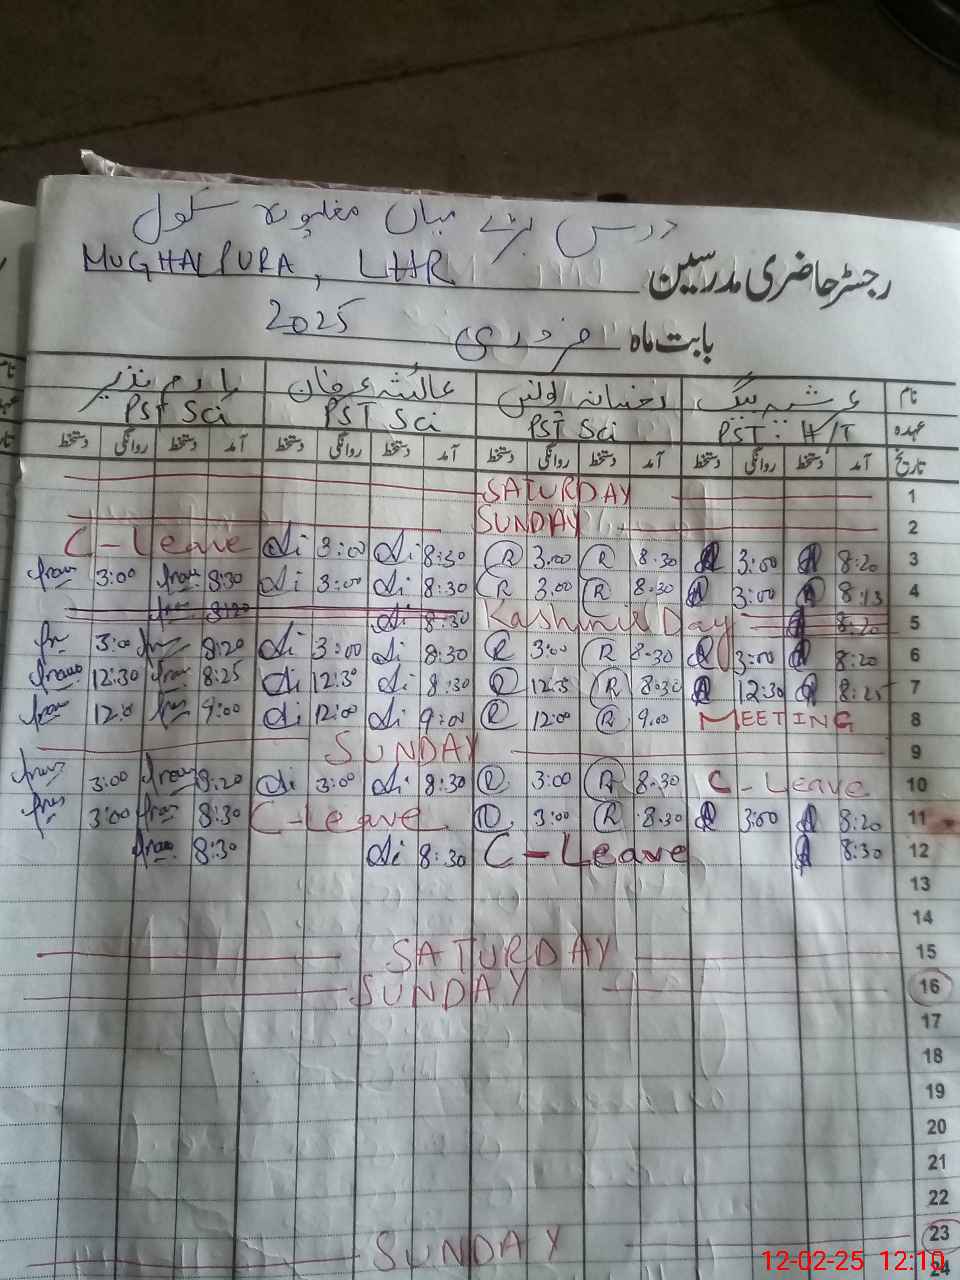 درس بڑے میاں مغلپورہ سکول
رجسٹر حاضری مدرسین MUGHALPURA, LHR
بابت ماہ فروری 2025
نام عائشہ خان
عہدہ PST: H/T PST Sci PST Sci PST Sci
تاریخ آمد دستخط روانگی دستخط آمد دستخط روانگی دستخط آمد دستخط روانگی دستخط آمد دستخط روانگی دستخط
1 SATURDAY
2 SUNDAY
3 8:20 3:00 8.30 R 3.00 R 8:30 3:00 C-Leave
4 8:15 3:00 8.30 R 3.00 R 8:30 3:00 8:30 3:00
5 8:20 Kashmir Day 8:30 8:20
6 8:20 3:00 8.30 R 3:00 R 8:30 3:00 8:20 3:00
7 8:25 12:30 8.30 R 12:3 R 8:30 12:30 8:25 12:30
8 MEETING 9.00 R 12:00 R 9:00 12:00 9:00 12:0
9 SUNDAY
10 C-Leave 8.30 R 3:00 R 8:30 3:00 8:20 3:00
11 8:20 3:00 8.30 R 3:00 R C-Leave 8:30 3:00
12 8:30 C-Leave 8:30 8:30
13
14
15 SATURDAY
16 SUNDAY
17
18
19
20
21
22
23 SUNDAY
24
12-02-25 12:10